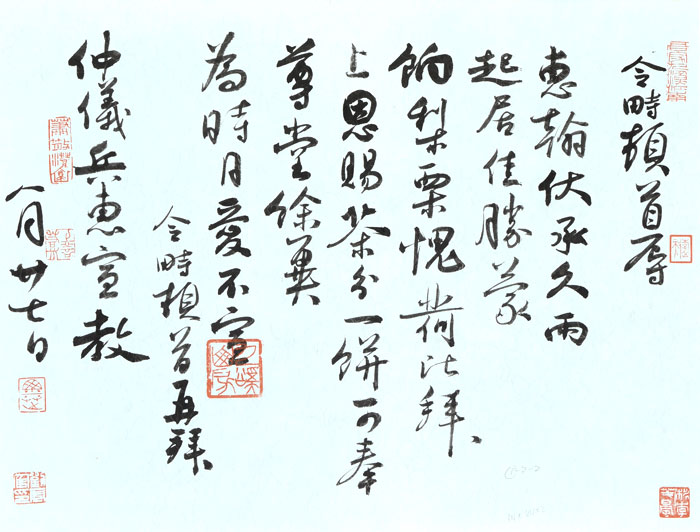 令畤頓首辱
惠翰伏承久雨
起居佳勝蒙
餉梨栗愧荷比拜
上恩賜茶分一餅可奉
尊堂餘冀
為時自愛不宣
令畤頓首再拜
仲儀兵曹宣教
八月廿七日